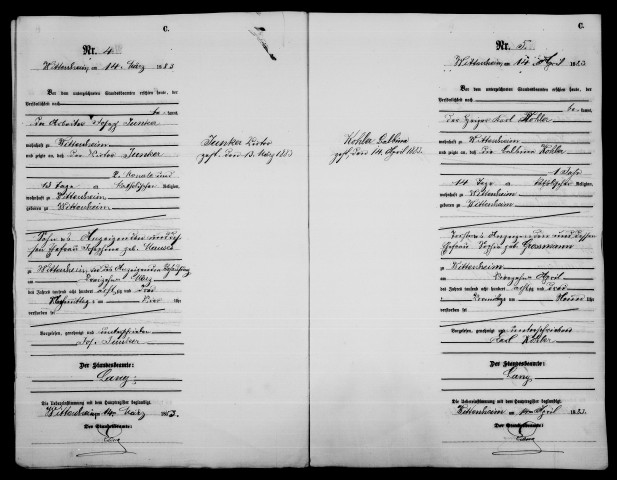 C.
Nr. 4
Wittenheim am 14. März 1883
Vor dem unterzeichneten Standesbeamten erschien heute, der
Persönlichkeit nach
be-kannt,
Der Arbeiter Joseph Jemker
wohnhaft zu Wittenheim
und zeigte an, daß Der Victor Jemker
2 Monate und
13 Tage alt katholischer Religion,
wohnhaft zu Wittenheim
geboren zu Wittenheim
Sohn des Anzeigenden und des-
sen Ehefrau Josephine geb.
zu Wittenheim, in des Anzeigenden Behausung
am dreizehnten März
des Jahres tausend acht hundert achtzig und drei
Nachmittags um vier Uhr
verstorben sei
Vorgelesen, genehmigt und unterschrieben
Jos. Jemker
Der Standesbeamte:
Lang
Die Uebereinstimmung mit dem Hauptregister beglaubigt
Wittenheim am 14. März 1883.
Der Standesbeamte:
Lang
Jemker Victor
gest. den 13. März 1883
Kohler Balbina
gest. den 14. April 1883
C.
Nr. 5.
Wittenheim am 14. April 1883
Vor dem unterzeichneten Standesbeamten erschien heute, der
Persönlichkeit nach
be-kannt,
Der Karl Kohler
wohnhaft zu Wittenheim
und zeigte an, daß Die Balbina Kohler
1 Jahr
14 Tage alt katholischer Religion,
wohnhaft zu Wittenheim
geboren zu Wittenheim
Tochter des Anzeigenden und dessen
Ehefrau geb. Grossmann
zu Wittenheim
am April
des Jahres tausend acht hundert achtzig und drei
Vormittags um Uhr
verstorben sei
Vorgelesen, genehmigt und unterschrieben
Karl Kohler
Der Standesbeamte:
Lang
Die Uebereinstimmung mit dem Hauptregister beglaubigt
Wittenheim am 14. April 1883.
Der Standesbeamte:
Lang